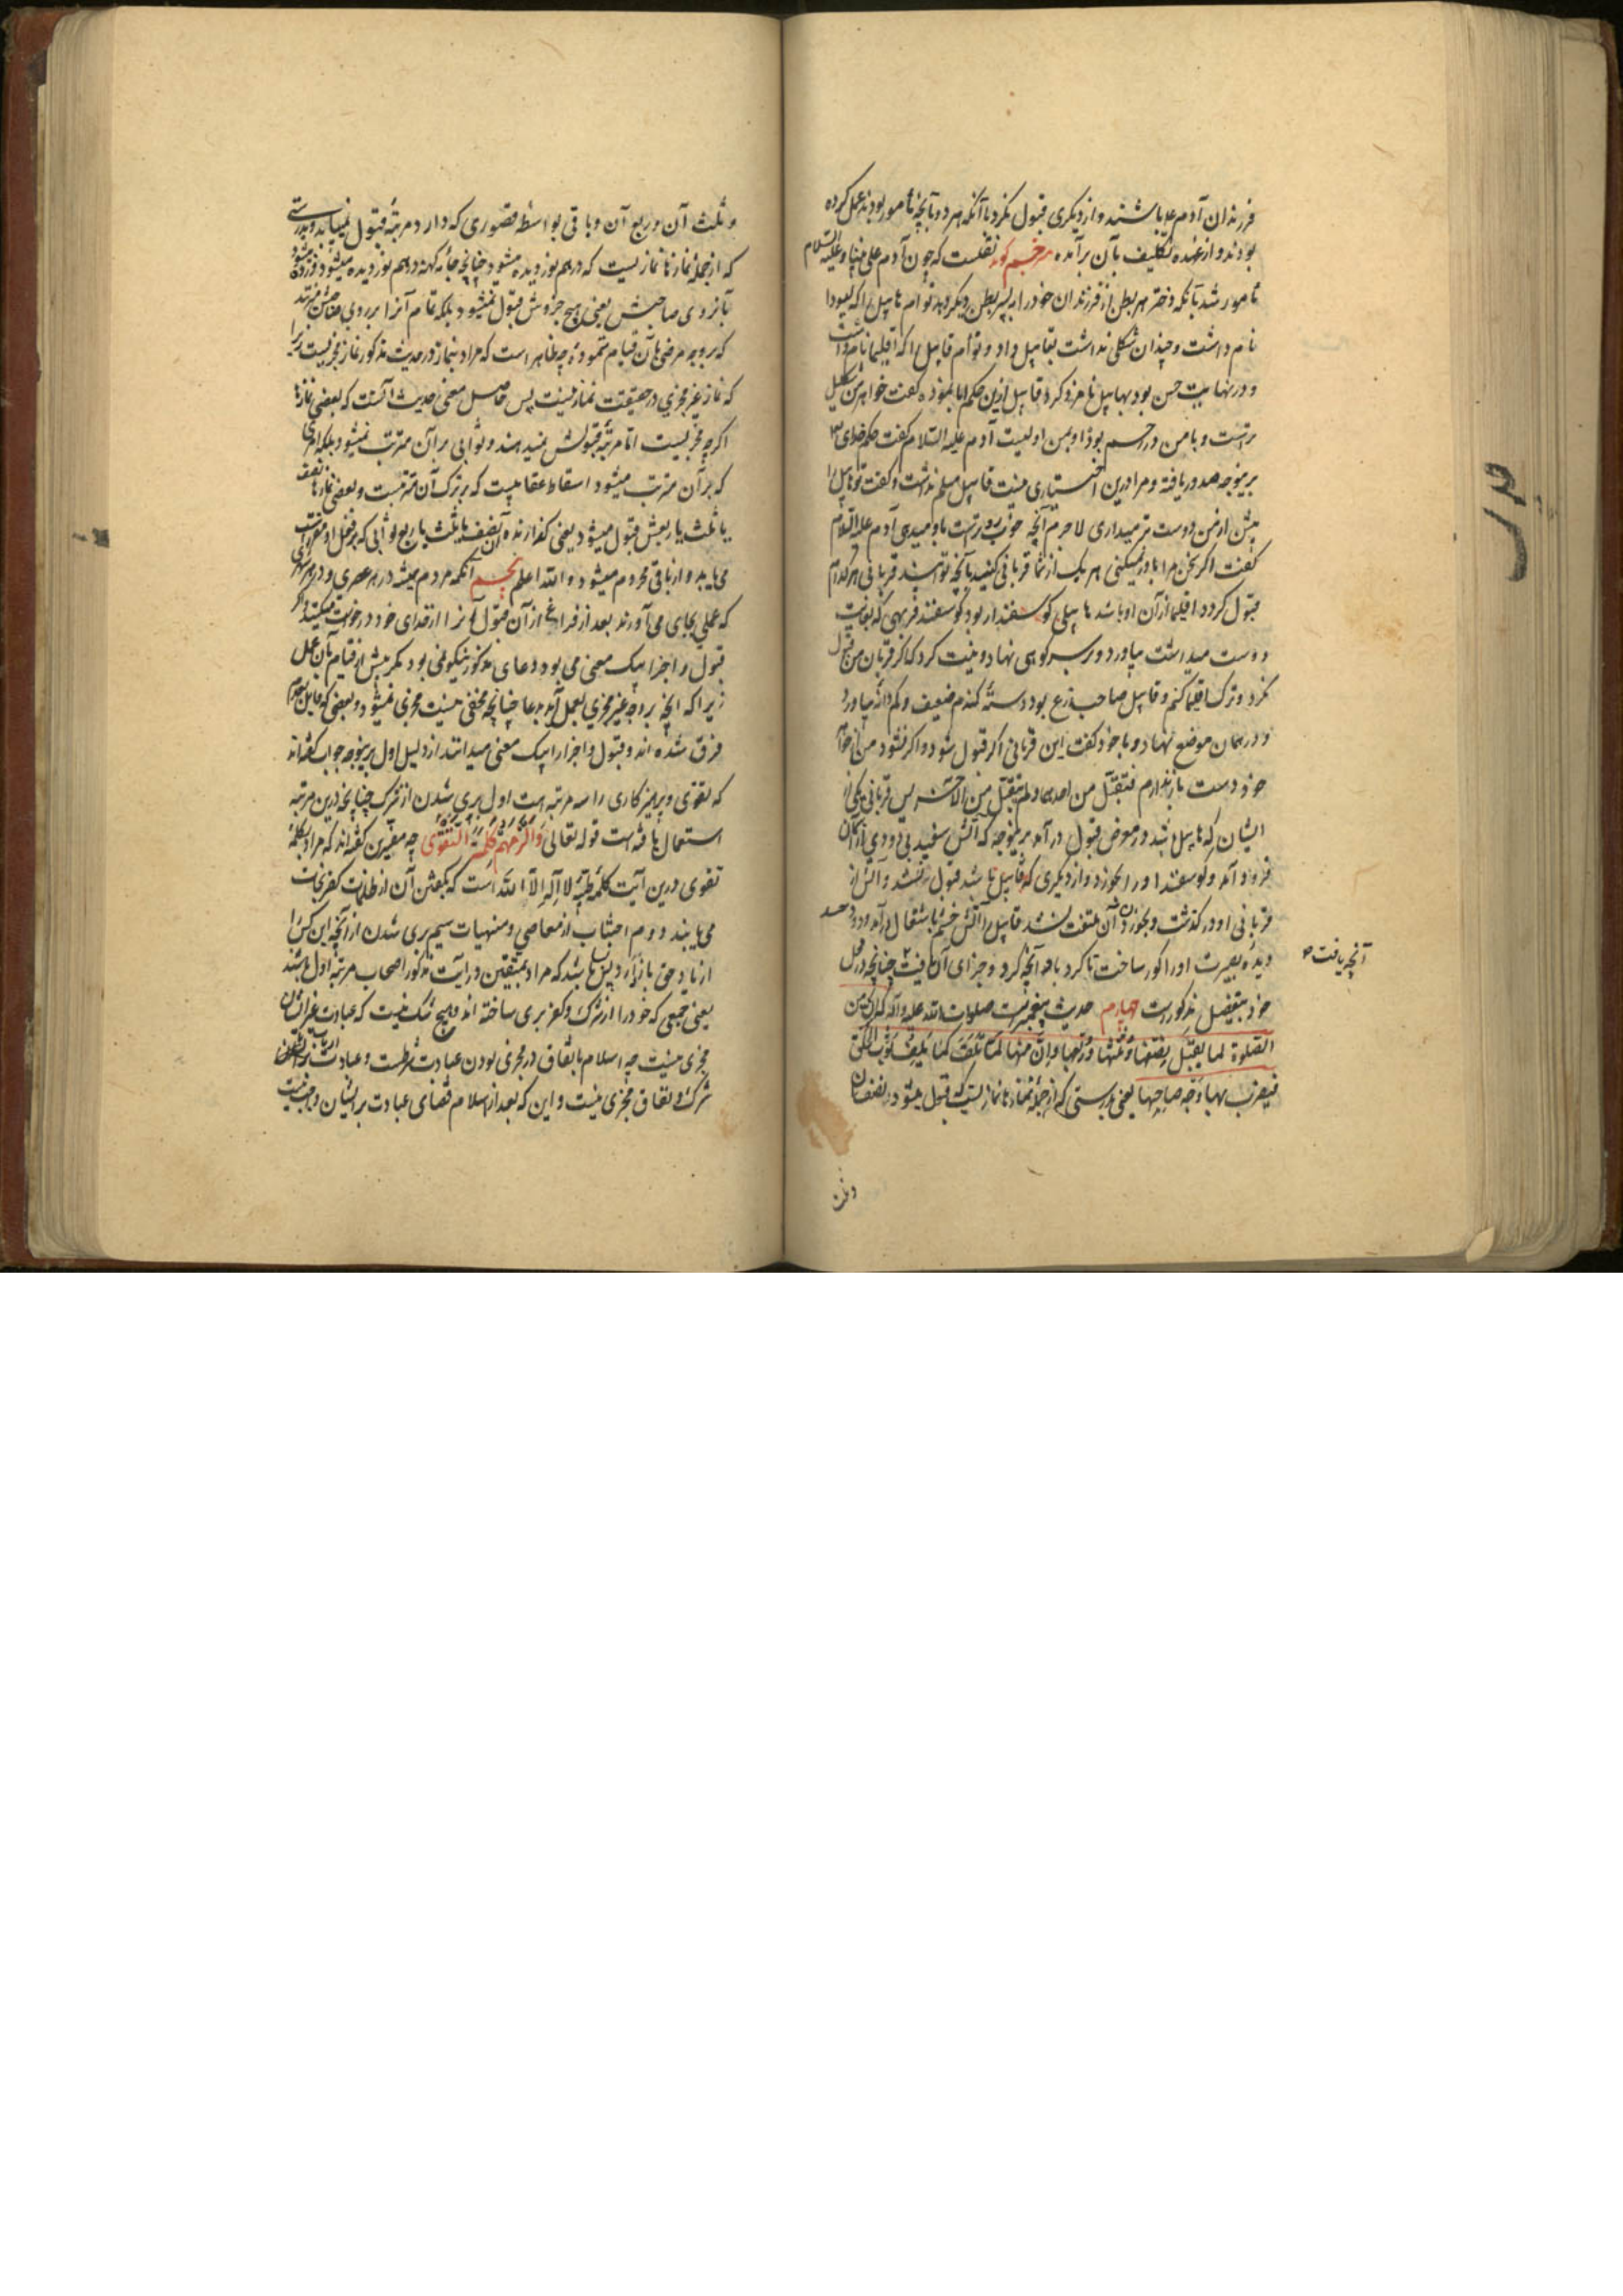 فرزندان آدم علیه باشند و از دیگری قبول نکرد با آنکه هر دو بآنچه مأمور بودند عمل کرده
بودند و از عهده تکلیف بآن برآمده مترجم گوید نقلست که چون آدم علی نبینا و علیه السلام
مأمور شد بآنکه دختر هر بطن از فرزندان خود را به پسر بطن دیگر دهد توأم هابیل را که لیودا
نام داشت و چندان شکلی نداشت بقابیل داد و توأم قابیل را که اقلیما نام داشت
و در نهایت حسن بود بهابیل نامزد کرد قابیل ازین حکم ابا نموده گفت خواهر من جمیل
تر است و با من در رحم بوده او بمن اولیست آدم علیه السلام گفت حکم خدای
برینوجه صدور یافته و مرا درین اختیاری نیست قابیل مسلم نداشت و گفت تو هابیل را
بیش از من دوست تر میداری لاجرم آنچه خوب تر است باو میدهی آدم علیه السلام
گفت اگر سخن مرا باور نمیکنی هر یک از شما قربانی کنید بآنچه توانید قربانی هر کدام
قبول گردد اقلیما از آن او باشد هابیل گوسفنددار بود گوسفند فربهی که بغایت
دوست میداشت بیاورد و بر سر کوهی نهاد و نیت کرد که اگر قربان من قبول
نکرد و ترک اقلیما کنم و قابیل صاحب زرع بود دسته گندم ضعیف و کم دانه بیاورد
و در همان موضع نهاد و با خود گفت این قربانی اگر قبول شود و اگر نشود من از خواهر
خود دست باز ندارم فتقبل من احدهما و لم یتقبل من الآخر پس قربانی یکی از
ایشان که هابیل باشد در معرض قبول درآمد برینوجه که آتش سفید بی دودی از آسمان
فرود آمد و گوسفند او را بخورد و از دیگری که قابیل باشد قبول نشد و آتش از
قربانی او در گذشت و بخوردن آن ملتفت نشد قابیل را آتش خشم باشتعال درآمد و دود حسد
دیده بصیرت او را کور ساخت تا کرد با او آنچه کرد و جزای آن یافت چنانچه در محل
آنچه یافت
خود بتفصیل مذکور است چهارم حدیث پیغمبر است صلوات الله علیه و آله که ان من
الصلوة لما یقبل نصفها و ثلثها و ربعها و ان منها لما تلف کما یلف الثوب الخلق
فیضرب بها وجه صاحبها یعنی بدرستی که از جمله نمازها نمازیست که قبول میشود نصف آن
و ثلث
و ثلث آن و ربع آن و باقی بواسطه قصوری که دارد مرتبه قبول نمییابد و بدرستی
که از جمله نمازها نمازیست که درهم نوردیده میشود چنانچه جامه کهنه درهم نوردیده میشود و زده میشود
بآن روی صاحبش یعنی هیچ جزوش قبول نمیشود بلکه تمام آنرا بر روی صاحبش میزنند
که بر وجه مرضی بآن قیام ننموده و چه ظاهر است که مراد بنماز در حدیث مذکور نماز مجزیست زیرا
که نماز غیر مجزی در حقیقت نماز نیست پس حاصل معنی حدیث آنست که بعضی نمازها
اگرچه مجزیست اما مرتبه قبولش نمیدهند و ثوابی بر آن مترتب نمیشود بلکه امری
که بر آن مترتب میشود اسقاط عقابیست که بر ترک آن مترتبست و بعضی نمازها نصف
یا ثلث یا ربعش قبول میشود یعنی گذارنده آن نصف یا ثلث یا ربع ثوابی که بر فعل او مقرر است
می‌یابد و از باقی محروم میشود و الله اعلم پنجم آنکه مردم همیشه در هر عصری و در هر
که عملی بجای می‌آورند بعد از فراغ از آن قبول آنرا از خدای خود درخواست میکنند و اگر
قبول و اجزا بیک معنی می‌بود دعای مذکور نیکو نمی‌بود مگر پیش از قیام بآن عمل
زیرا که آنچه بر وجه غیر مجزی بعمل آید بدعا چنانچه مخفی نیست مجزی نمیشود و بعضی که قایل بعدم
فرق شده‌اند و قبول و اجزا را بیک معنی میدانند از دلیل اول برینوجه جواب گفته‌اند
که تقوی و پرهیزکاری را سه مرتبه است اول بری شدن از شرک چنانچه درین مرتبه
استعمال یافته است قوله تعالی وَأَلْزَمَهُمْ كَلِمَةَ التَّقْوَى چه مفسرین گفته‌اند که مراد بکلمه
تقوی درین آیت کلمه طیبه لا اله الا الله است که بگفتن آن از ظلمت کفر نجات
می‌یابند دوم اجتناب از معاصی و منهیات سیم بری شدن از آنچه این کس را
از یاد حق باز دارد پس میباشد که مراد بمتقین در آیت مذکور اصحاب مرتبه اول باشند
یعنی جمعی که خود را از شرک و کفر بری ساخته‌اند و هیچ شک نیست که عبادت غیر ایشان
مجزی نیست چه اسلام باتفاق در مجزی بودن عبادت شرطست و عبادت ارباب
شرک و نفاق مجزی نیست و این که بعد از اسلام قضای عبادت بر ایشان واجب نیست